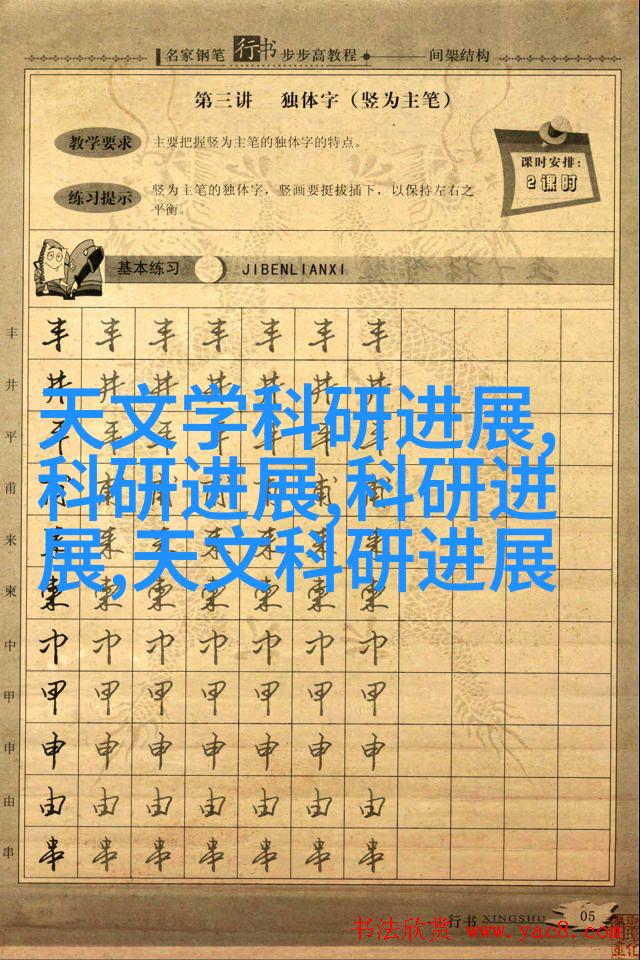 名家钢笔行书步步高教程 间架结构
第三讲 独体字（竖为主笔）
教学要求 主要把握竖为主笔的独体字的特点。
课时安排：
2课时
练习提示 竖为主笔的独体字，竖画要挺拔插下，以保持左右之
平衡。
基本练习 JIBENLIANXI
丰 丰 丰 丰 丰 丰 丰 丰
井 井 井 井 井 井 井 井
天文学科研进展,
平
科研进展,科研进
甫
展,天文科研进展
来
柬 柬 柬 柬 柬 柬 柬 柬
中 中 中 中 中 中 中 中
甲 甲 甲 甲 甲 甲 甲 甲
申 申 申 申 申 申 申 申
由 由 由 由 由 由 由 由
串 串 串 串 串 串 串 串
行书 XINGSHU 05
书法欣赏 www.yac8.com